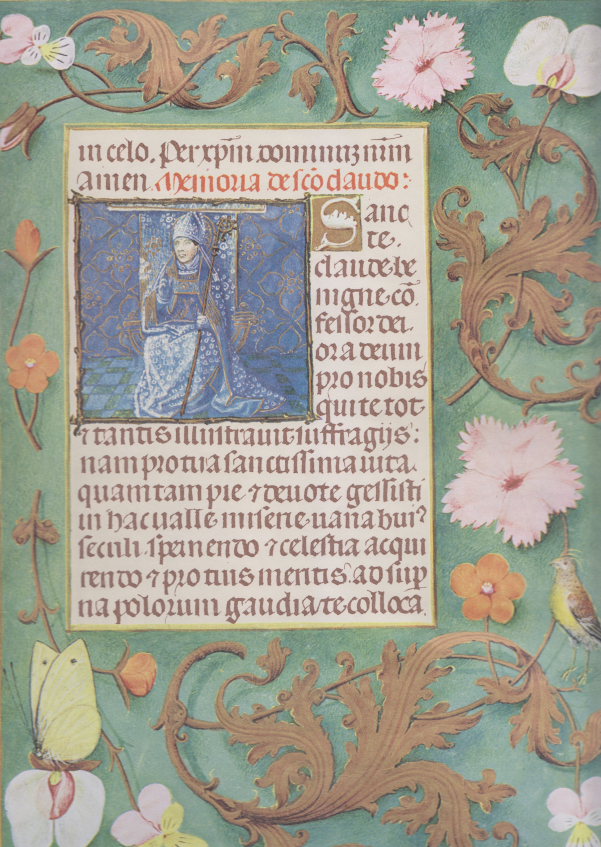 in celo. Per xp̄m dominuz nr̄m
amen. Memoria de scō claudo:
Sanc
te.
claude be
nigne cō
fessor dei
ora deum
pro nobis
qui te tot
⁊ tantis illustrauit suffragijs:
nam pro tua sanctissima uita.
quam tam pie ⁊ deuote gessisti
in hac ualle miserie uana hui⁹
seculi spernendo ⁊ celestia acqui
rendo ⁊ pro tuis meritis ad sup
na polorum gaudia te colloca.